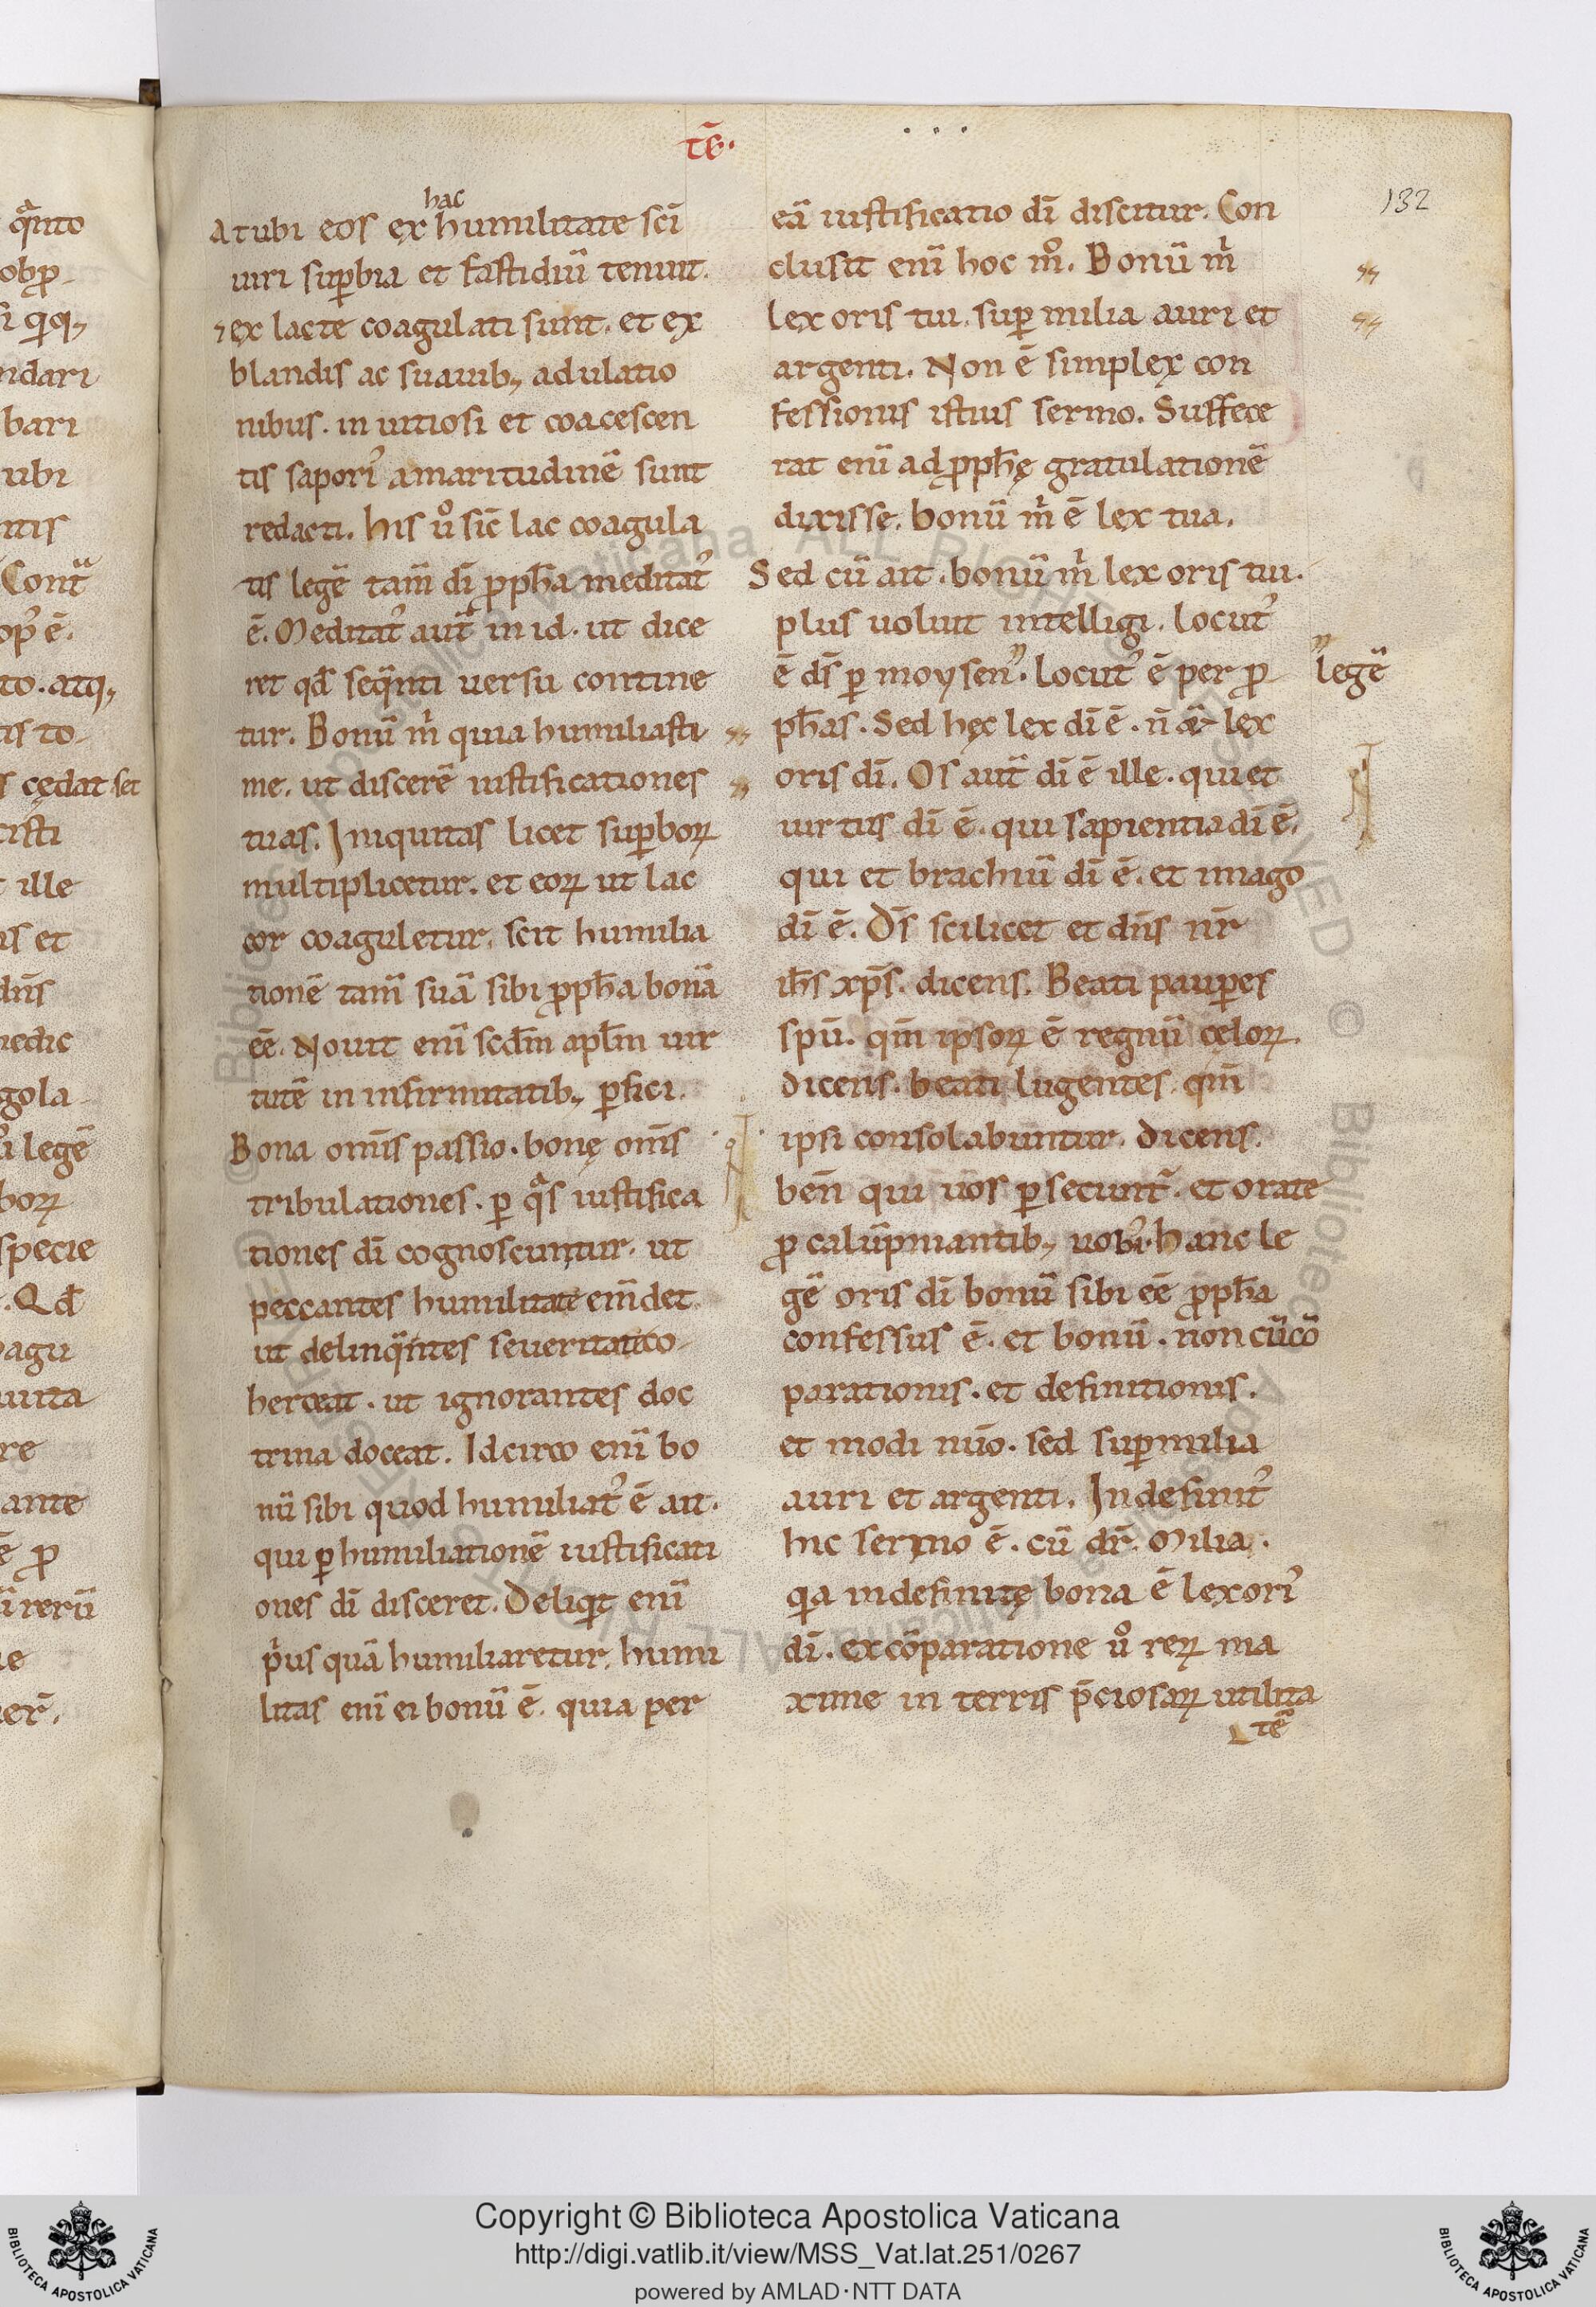 tē.
132
At ubi eos ex hac humilitate sc̄i
uiri suꝑbia et fastidiū tenuit.
⁊ ex lacte coagulati sunt. et ex
blandis ac suauibꝫ adulatio
nibus. in uitiosi et coacescen
tis saporꝰ amaritudinē sunt
redacti. his ů sic̄ lac coagula
tis legē tam̄ dī ꝓph̄a meditatꝰ
ē. Meditatꝰ aut̄ in id. ut dice
ret qd̄ seq̄nti uersu contine
tur. Bonū m̄ quia humiliasti
me. ut discerē iustificationes
tuas. Iniquitas licet suꝑboꝝ
multiplicetur. et eoꝝ ut lac
cor coaguletur. scit humilia
tionē tam̄ suā sibi ꝓph̄a bonā
eē. Nouit enī scd̄m apl̄m uir
tutē in infirmitatibꝫ ꝑfici.
Bona om̄s passio. bonę om̄s
tribulationes. ꝑ q̄s iustifica
tiones dī cognoscuntur. ut
peccantes humilitate em̄det
ut delinq̄ntes seueritati co-
herceat. ut ignorantes doc
trina doceat. Idcirco enī bo
nū sibi quod humiliatꝰ ē ait.
qui ꝑ humiliationē iustificati
ones dī disceret. Deliqͥt enī
pͥus quā humiliaretur. humi
litas enī ei bonū ē. quia per
eā iustificatio dī discitur. Con
clusit enī hoc m̊. Bonū mͥ
lex oris tui. suꝑ milia auri et
argenti. Non ē simplex con
fessionis istius sermo. Suffece
rat enī ad ꝓph̄ę gratulationē
dixisse. bonū mͥ ē lex tua.
Sed cū ait. bonū mͥ lex oris tui.
plus uoluit intelligi. locutꝰ
ē ds̄ ꝑ moysen. locutꝰ ē per ꝓ- legē
ph̄as. Sed hęc lex dī ē. n̄ lex
oris dī. Os aut̄ dī ē ille. qui et
uirtus dī ē. qui sapientia dī ē.
qui et brachiū dī ē. et imago
dī ē. Ds̄ scilicet et dn̄s nr̄
ih̄s xp̄s. dicens. Beati pauꝑes
spū. qm̄ ipsoꝝ ē regnū cęloꝝ.
dicens. beati lugentes. qm̄
ipsi consolabuntur. dicens.
ben̄ qui uos ꝑsecunt̄. et orate
ꝓ calūpniantibꝫ uobꝰ. hanc le
gē oris dī bonū sibi eē ꝓph̄a
confessus ē. et bonū. non cū cō
parationis. et definitionis.
et modi nūo. sed suꝑ milia
auri et argenti. Indefinitꝰ
hic sermo ē. cū dr̄. Milia.
qͥa indefinitę bona ē lex orꝰ
dī. ex cōparatione ů reꝝ ma
xime in terris p̄ciosaꝝ utilita
tē
Copyright © Biblioteca Apostolica Vaticana
http://digi.vatlib.it/view/MSS_Vat.lat.251/0267
powered by AMLAD·NTT DATA